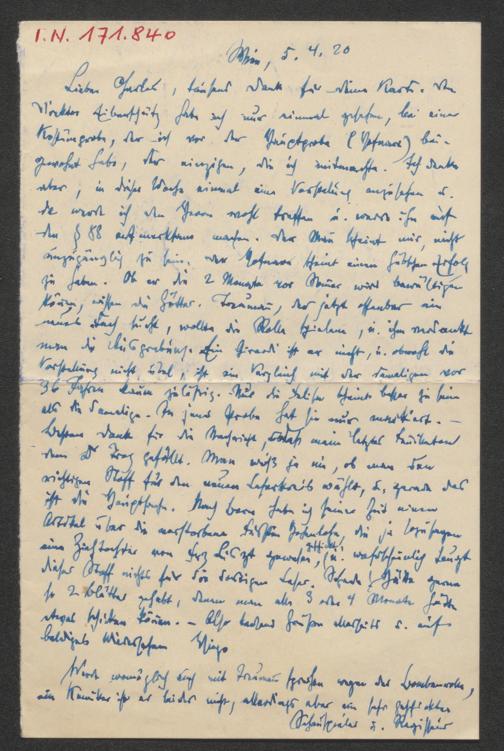 I.N. 171.840
Wien, 5. 4. 20
Lieber Charles, tausend Dank für deine Karte. Den
Direktor habe ich nur einmal gesehen, bei einer
Kostümprobe, der ich vor der Hauptprobe ( ) bei-
gewohnt habe, der einzigen, die ich mitmachte. Ich denke
aber, in dieser Woche einmal eine Vorstellung anzusehen u.
da werde ich den Herrn wohl treffen u. werde ihn auf
den § 88 aufmerksam machen. Der Mann scheint mir nicht
unzugänglich zu sein. Der scheint einen hübschen Erfolg
zu haben. Ob er die 2 Monate vor Sommer wird bewältigen
können, wissen die Götter. Treumann, der jetzt offenbar ein
neues Fach sucht, wollte die Rolle spielen, u. ihm verdankt
man die Ausgrabung. Ein Girardi ist er nicht, u. obwohl die
Vorstellung nicht übel, ist ein Vergleich mit der damaligen vor
36 Jahren kaum zulässig. Nur die scheint besser zu sein
als die damalige. In jener Probe hat sie nur markiert. –
Besten Dank für die Nachricht, daß mein letztes Feuilleton
dem Dr gefällt. Man weiß ja nie, ob man den
richtigen Stoff für den neuen Leserkreis wählt, u. gerade das
ist die Hauptsache. Noch habe ich seiner Zeit einen
Artikel über die verstorbene Fürstin Hohenlohe, die ja sozusagen
eine Ziehtochter von Franz Liszt gewesen, u. wahrscheinlich taugt
dieser Stoff nichts für die dortigen Leser. Schade, hätte gerne
so 2 Blätter gehabt, denen man alle 3 oder 4 Monate hätte
etwas schicken können. – Also tausend Grüße allerseits u. auf
baldiges Wiedersehen Hugo
Werde womöglich auch mit Treumann sprechen wegen der ,
ein Komiker ist er leider nicht, allerdings aber ein sehr geschickter
Schauspieler u. Regisseur